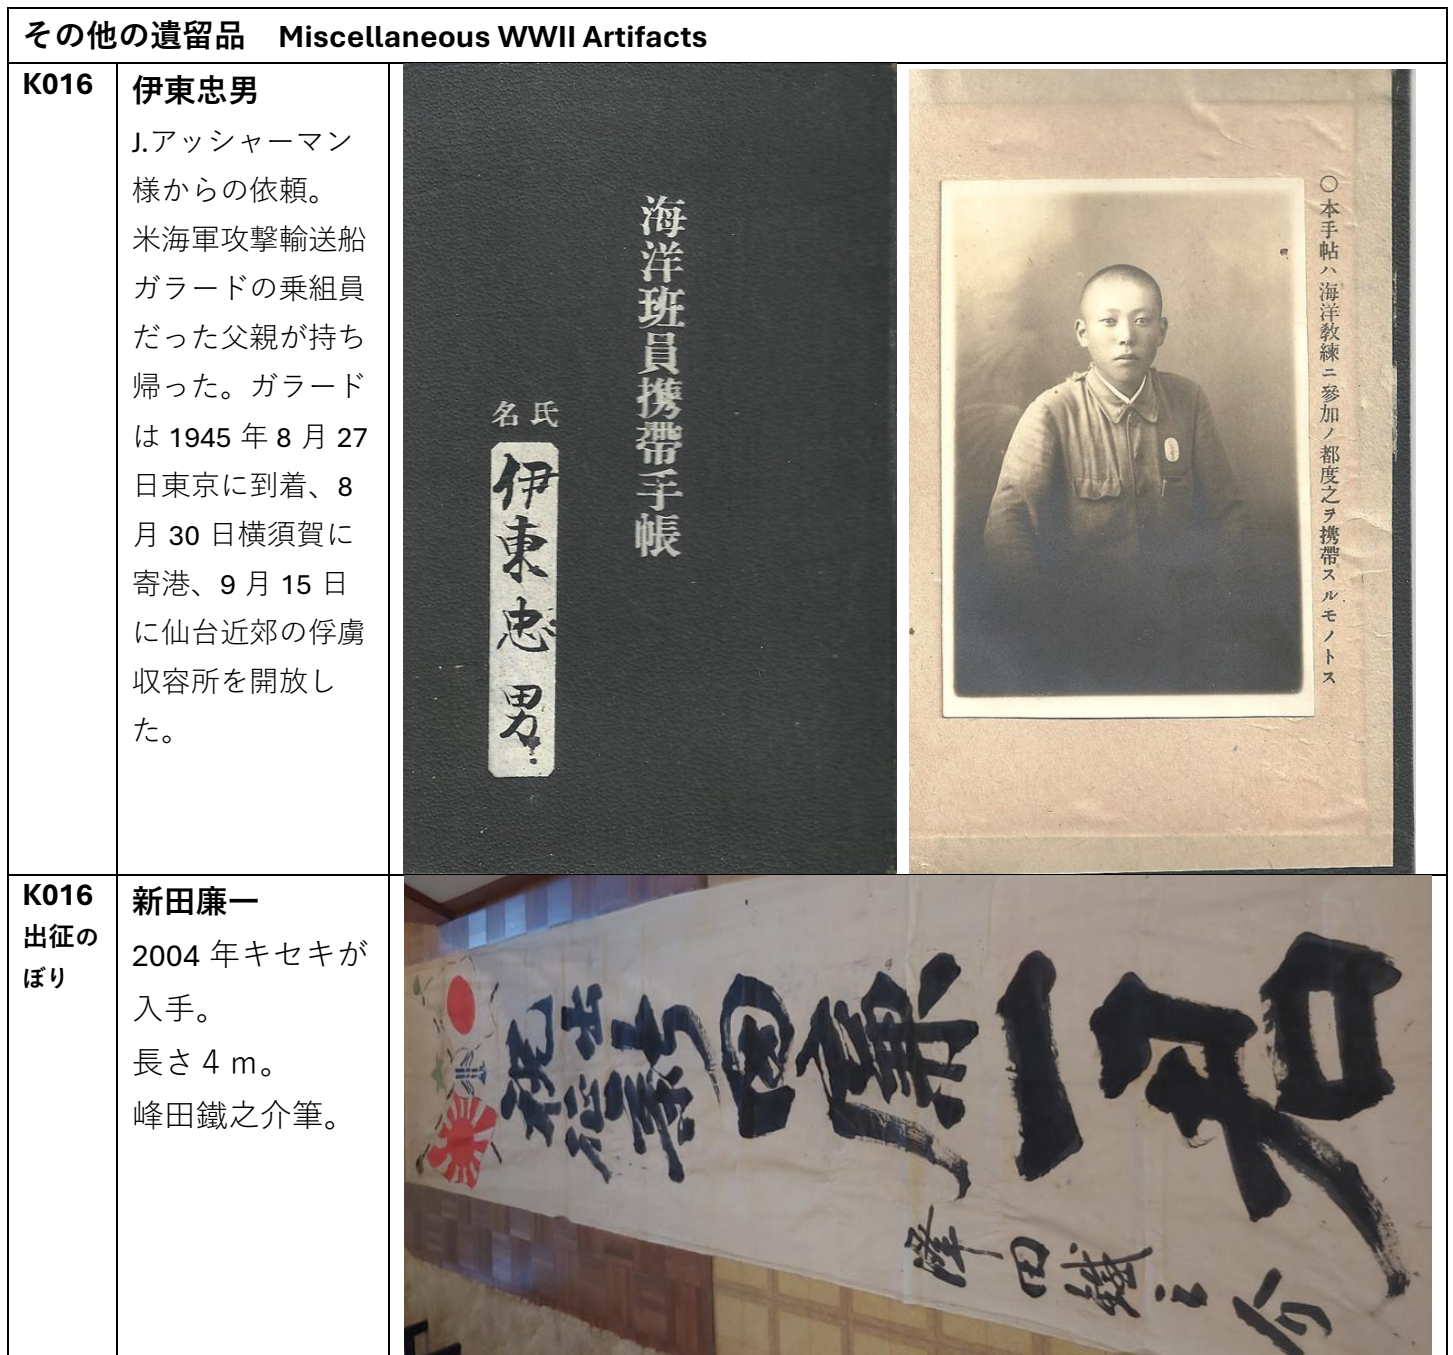 その他の遺留品 Miscellaneous WWII Artifacts
K016
伊東忠男
J.アッシャーマン
様からの依頼。
米海軍攻撃輸送船
ガラードの乗組員
だった父親が持ち
帰った。ガラード
は 1945 年 8 月 27
日東京に到着、8
月 30 日横須賀に
寄港、9 月 15 日
に仙台近郊の俘虜
収容所を開放し
た。
海洋班員携帶手帳
氏名
伊東忠男
○本手帖ハ海洋教練ニ參加ノ都度之ヲ携帶スルモノトス
K016
出征の
ぼり
新田廉一
2004 年キセキが
入手。
長さ４ｍ。
峰田鐵之介筆。
祝出征新田廉一君
峰田鐵之介